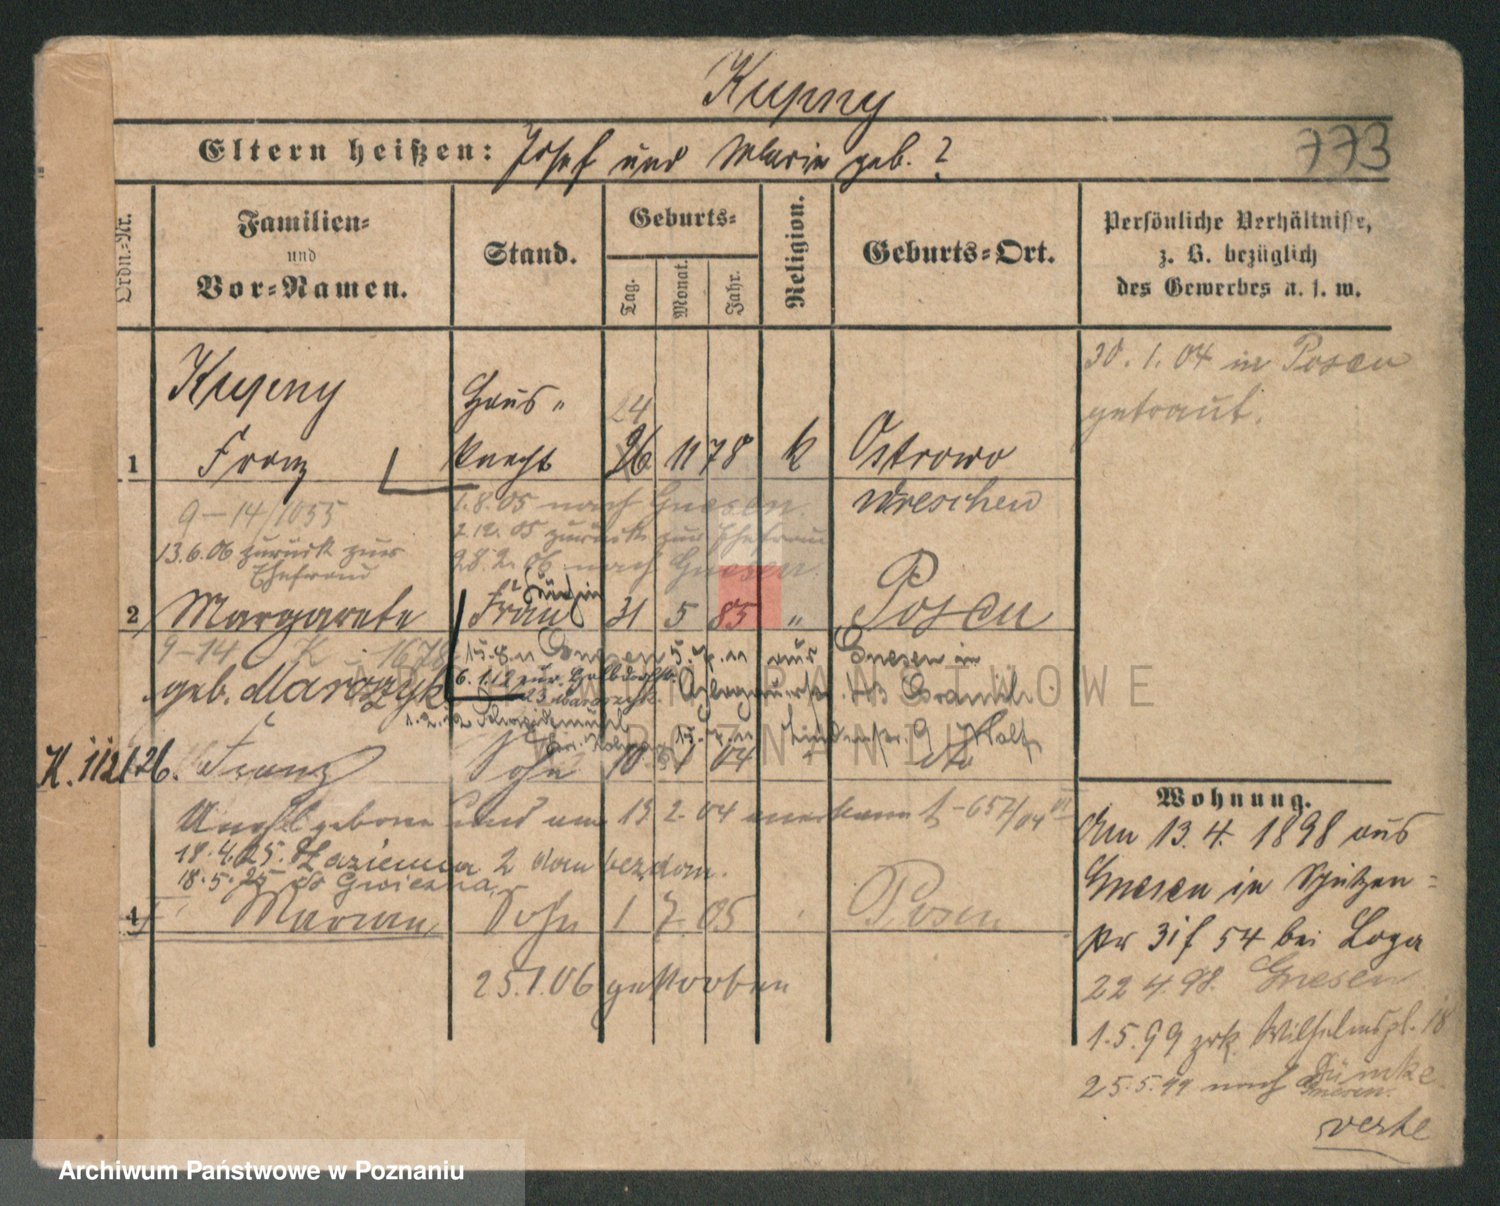 Kupny
773
Eltern heißen: Josef und Marie geb. ?
Ordn.-Nr.
Familien-
und
Vor-Namen.
Stand.
Geburts-
Tag.
Monat.
Jahr.
Religion.
Geburts-Ort.
Persönliche Verhältnisse,
z. B. bezüglich
des Gewerbes u. s. w.
30. 1. 04 in Posen
getraut.
Kupny
Haus-
24
1 Franz knecht 26 11 78 k Ostrowo
Wreschen
9-14/1055
1.8.05 nach Gnesen.
2.12.05 zurück zur Ehefrau
13.6.06 zurück zur
Ehefrau
28.2.06 nach Gnesen.
2 Margarete Frau 31 5 85 " Posen
9-14 K 1678
geb. Marczyk
Gnesen in
K. 112126. Franz Sohn 10 1 04 " dto
Unehl geboren und am 13 2 04 anerkannt - 657/04 VI
18.4.25. Łazienna 2 dom bez dom.
18.5.25 do Gniezna
4 Marian Sohn 1 7 05 Posen
25.1.06 gestorben
Wohnung.
Am 13.4. 1898 aus
Gnesen in Schützen-
str 31 f 54 bei Loga
22 4.98. Gnesen
1.5.99 zrk. Wilhelmspl. 18
25.5.99 nach Gnesen.
verte
ARCHIWUM PAŃSTWOWE
W POZNANIU
Archiwum Państwowe w Poznaniu